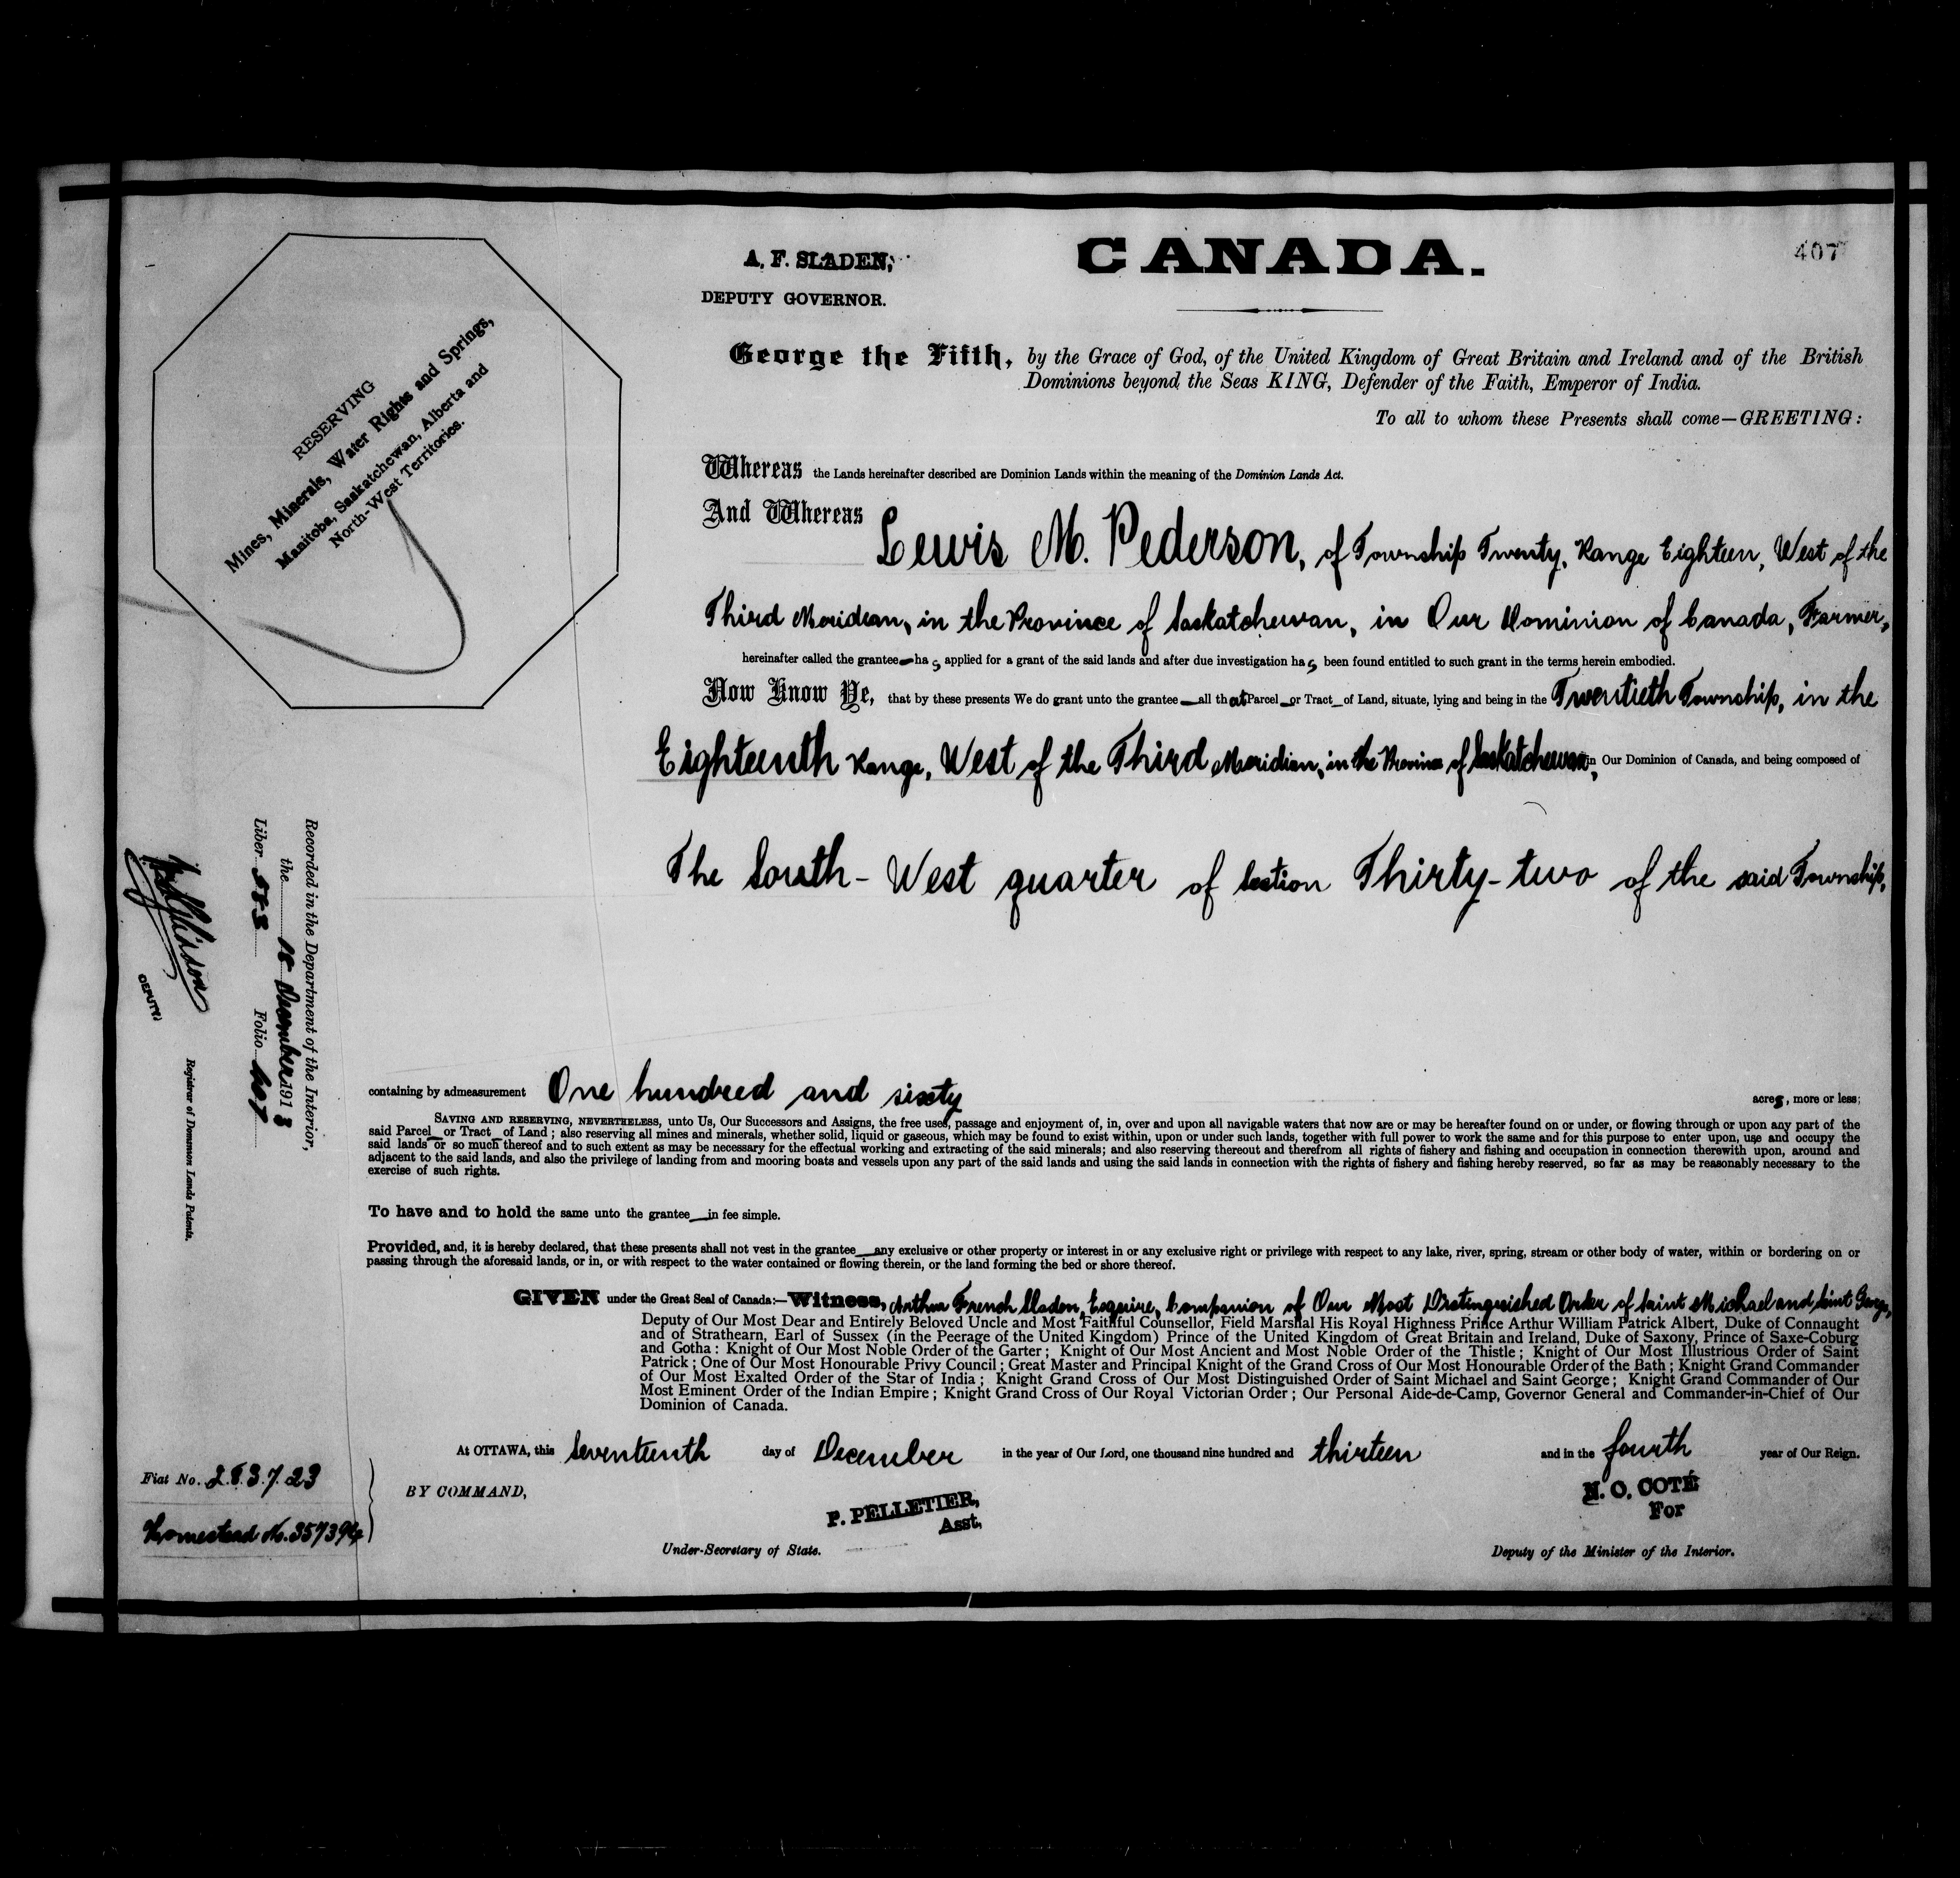 407
CANADA.
A. F. SLADEN,
DEPUTY GOVERNOR.
RESERVING
Mines, Minerals, Water Rights and Springs,
Manitoba, Saskatchewan, Alberta and
North-West Territories.
George the Fifth, by the Grace of God, of the United Kingdom of Great Britain and Ireland and of the British
Dominions beyond the Seas KING, Defender of the Faith, Emperor of India.
To all to whom these Presents shall come—GREETING:
Whereas the Lands hereinafter described are Dominion Lands within the meaning of the Dominion Lands Act.
And Whereas Lewis M. Pederson, of Township Twenty, Range Eighteen, West of the
Third Meridian, in the Province of Saskatchewan, in Our Dominion of Canada, Farmer,
hereinafter called the grantee has applied for a grant of the said lands and after due investigation has been found entitled to such grant in the terms herein embodied.
Now Know Ye, that by these presents We do grant unto the grantee all that Parcel or Tract of Land, situate, lying and being in the Twentieth Township, in the
Eighteenth Range, West of the Third Meridian, in the Province of Saskatchewan, in Our Dominion of Canada, and being composed of
The South-West quarter of Section Thirty-two of the said Township,
containing by admeasurement One hundred and sixty acres, more or less;
SAVING AND RESERVING, NEVERTHELESS, unto Us, Our Successors and Assigns, the free uses, passage and enjoyment of, in, over and upon all navigable waters that now are or may be hereafter found on or under, or flowing through or upon any part of the
said Parcel or Tract of Land; also reserving all mines and minerals, whether solid, liquid or gaseous, which may be found to exist within, upon or under such lands, together with full power to work the same and for this purpose to enter upon, use and occupy the
said lands or so much thereof and to such extent as may be necessary for the effectual working and extracting of the said minerals; and also reserving thereout and therefrom all rights of fishery and fishing and occupation in connection therewith upon, around and
adjacent to the said lands, and also the privilege of landing from and mooring boats and vessels upon any part of the said lands and using the said lands in connection with the rights of fishery and fishing hereby reserved, so far as may be reasonably necessary to the
exercise of such rights.
To have and to hold the same unto the grantee in fee simple.
Provided, and, it is hereby declared, that these presents shall not vest in the grantee any exclusive or other property or interest in or any exclusive right or privilege with respect to any lake, river, spring, stream or other body of water, within or bordering on or
passing through the aforesaid lands, or in, or with respect to the water contained or flowing therein, or the land forming the bed or shore thereof.
GIVEN under the Great Seal of Canada:—Witness, Arthur French Sladen, Esquire, Companion of Our Most Distinguished Order of Saint Michael and Saint George,
Deputy of Our Most Dear and Entirely Beloved Uncle and Most Faithful Counsellor, Field Marshal His Royal Highness Prince Arthur William Patrick Albert, Duke of Connaught
and of Strathearn, Earl of Sussex (in the Peerage of the United Kingdom) Prince of the United Kingdom of Great Britain and Ireland, Duke of Saxony, Prince of Saxe-Coburg
and Gotha: Knight of Our Most Noble Order of the Garter; Knight of Our Most Ancient and Most Noble Order of the Thistle; Knight of Our Most Illustrious Order of Saint
Patrick; One of Our Most Honourable Privy Council; Great Master and Principal Knight of the Grand Cross of Our Most Honourable Order of the Bath; Knight Grand Commander
of Our Most Exalted Order of the Star of India; Knight Grand Cross of Our Most Distinguished Order of Saint Michael and Saint George; Knight Grand Commander of Our
Most Eminent Order of the Indian Empire; Knight Grand Cross of Our Royal Victorian Order; Our Personal Aide-de-Camp, Governor General and Commander-in-Chief of Our
Dominion of Canada.
At OTTAWA, this seventeenth day of December in the year of Our Lord, one thousand nine hundred and thirteen and in the fourth year of Our Reign.
BY COMMAND,
P. PELLETIER,
Asst.
Under-Secretary of State.
N. O. COTÉ
For
Deputy of the Minister of the Interior.
Recorded in the Department of the Interior,
the 18 December 1913
Liber 583 Folio 407
DEPUTY
Registrar of Dominion Lands Patents.
Fiat No. 283723
Homestead No. 357394